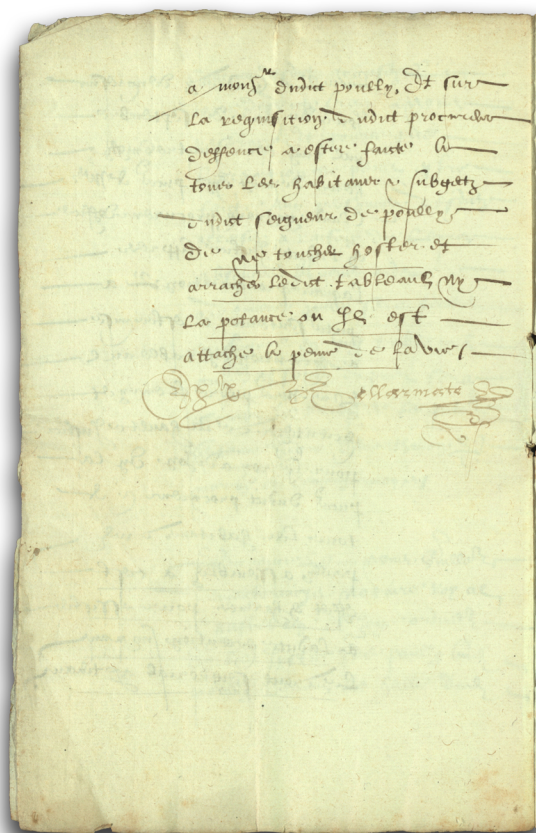 a mons^r dudict poully, Et sur
la requisition dudict procureur
deffence a estre faicte a
tous les habitans & subgectz
dudict seigneur de poully
de ne toucher hoster et
arracher ledict tableaul ny
la potance ou Il est
attache a peine de la vie /